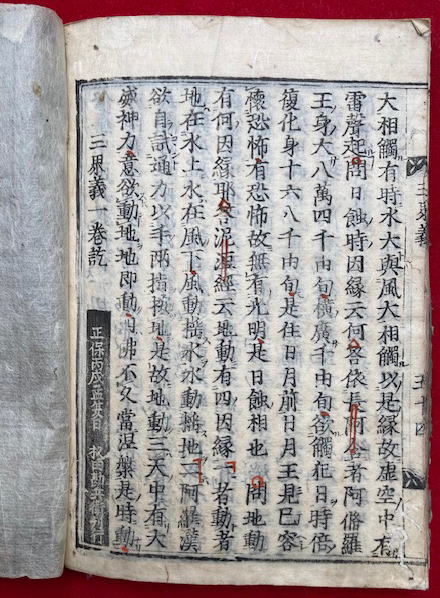 三界義 五十四
大相觸有時水大與風大相觸以是緣故虛空中有
雷聲起問日蝕時因緣云何答依長阿含者阿脩羅
王身大八萬四千由旬橫廣千由旬欲觸犯日時倍
復化身十六八千由旬是住日月前日月王見已容
懷恐怖有恐怖故無有光明是日蝕相也 問地動
有何因緣耶答泥洹經云地動有四因緣一者動者
地在水上水在風下風動搖水水動搖地二阿羅漢
欲自試通力以手兩指按地是故地動三天中有大
威神力意欲動地地即動四佛不久當涅槃是時動
三界義一卷訖
正保丙戌孟